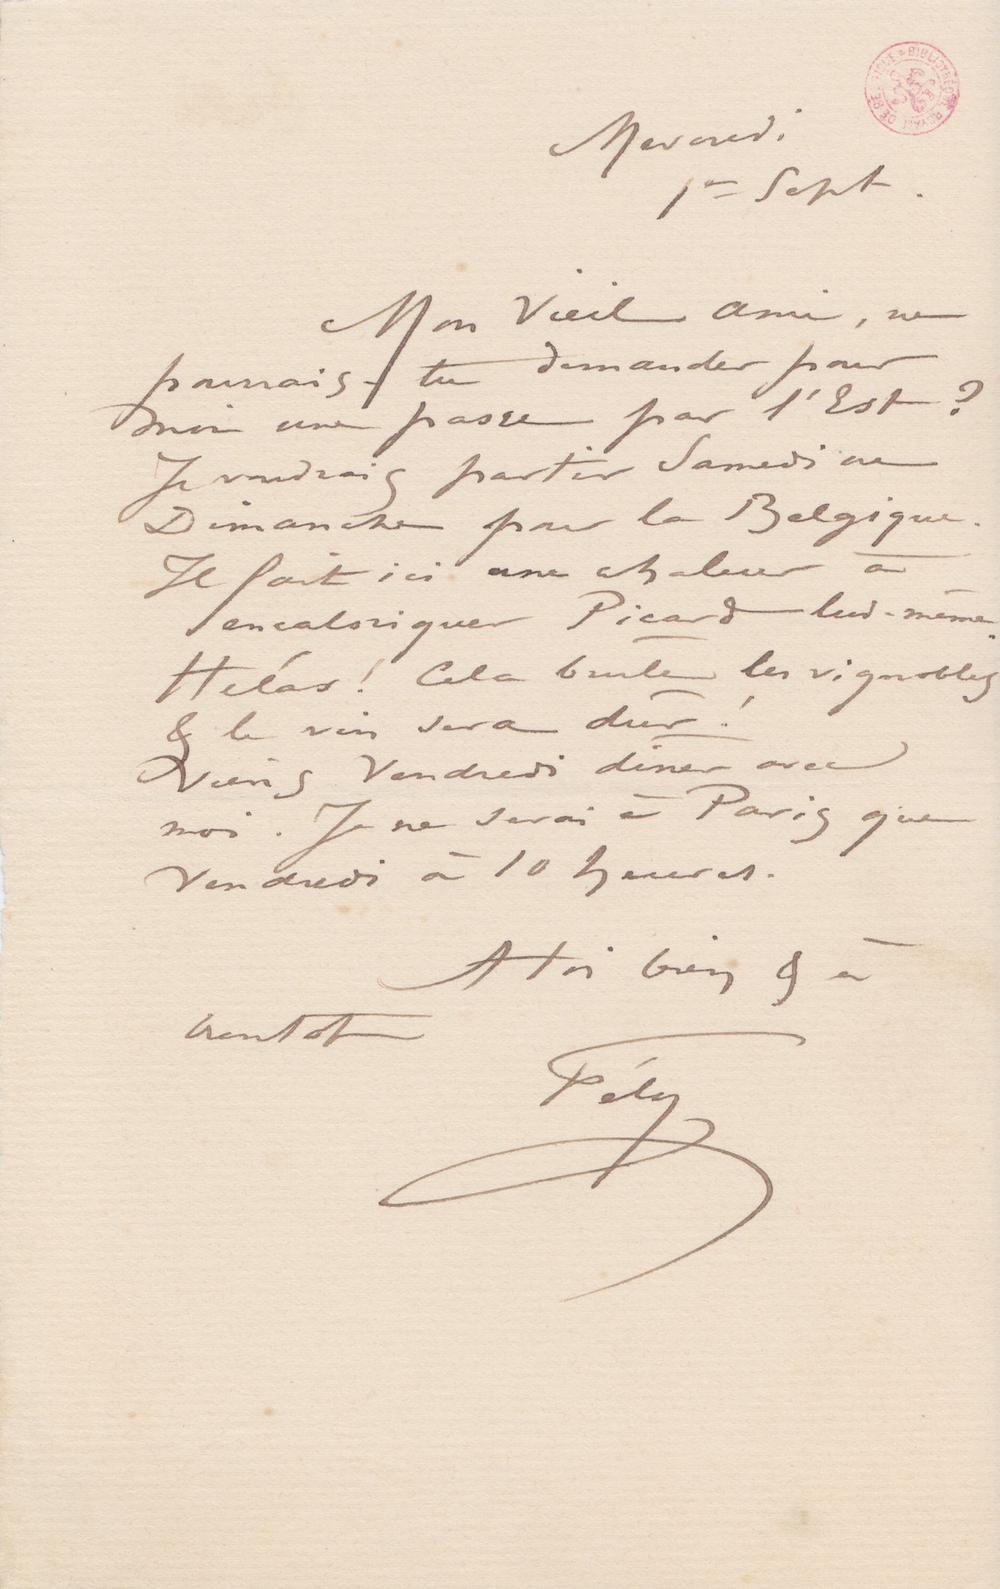 BIBLIOTHÈQUE ROYALE DE BELGIQUE
Mercredi
1er Sept.
Mon Vieil ami, ne
pourrais-tu demander pour
moi une passe par l'Est ?
Je voudrais partir Samedi ou
Dimanche pour la Belgique.
Il fait ici une chaleur à
encaloriquer Picard lui-même.
Helás ! Cela brûle les vignobles
& le vin sera dur !
Viens Vendredi dîner avec
moi. Je ne serai à Paris que
Vendredi à 10 heures.
A toi bien & à
bientot
Fély